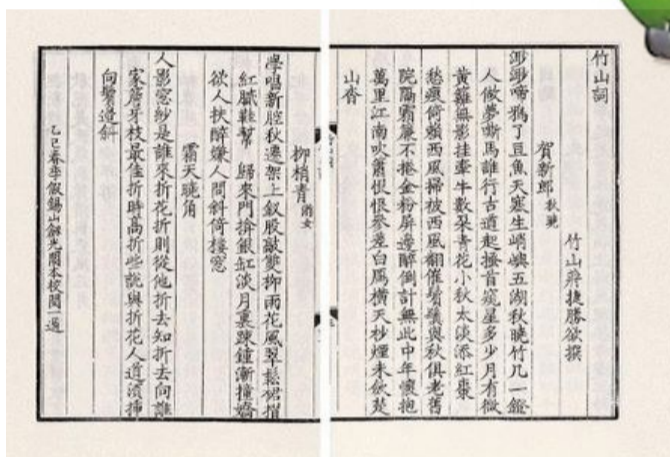 竹山詞
竹山蔣捷勝欲撰
賀新郎 秋曉
渺渺啼鴉了亘魚天寒生峭嶼五湖秋曉竹几一鐙
人做夢嘶馬誰行古道起搔首窺星多少月有微
黃籬無影挂牽牛數朵青花小秋太淡添紅棗
愁痕倚賴西風掃被西風翻催鬢鬒與秋俱老舊
院隔霜簾不捲金粉屏邊醉倒計無此中年懷抱
萬里江南吹簫恨恨參差白鴈橫天杪煙未斂楚
山杳
柳梢青 游女
學唱新腔秋遷架上釵股敲雙柳雨花風翠鬆裙褶
紅膩鞋幫 歸來門掩銀缸淡月裏疎鐘漸撞嬌
欲人扶醉嫌人問斜倚樓窗
霜天曉角
人影窗紗是誰來折花折則從他折去知折去向誰
家簷牙枝最佳折時高折些說與折花人道須插
向鬢邊斜
乙巳春季假錫山 本校閱一過